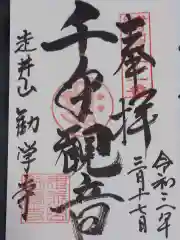 奉拝
令和二年
二月十七日
千夕觀音
走井山
勧学寺